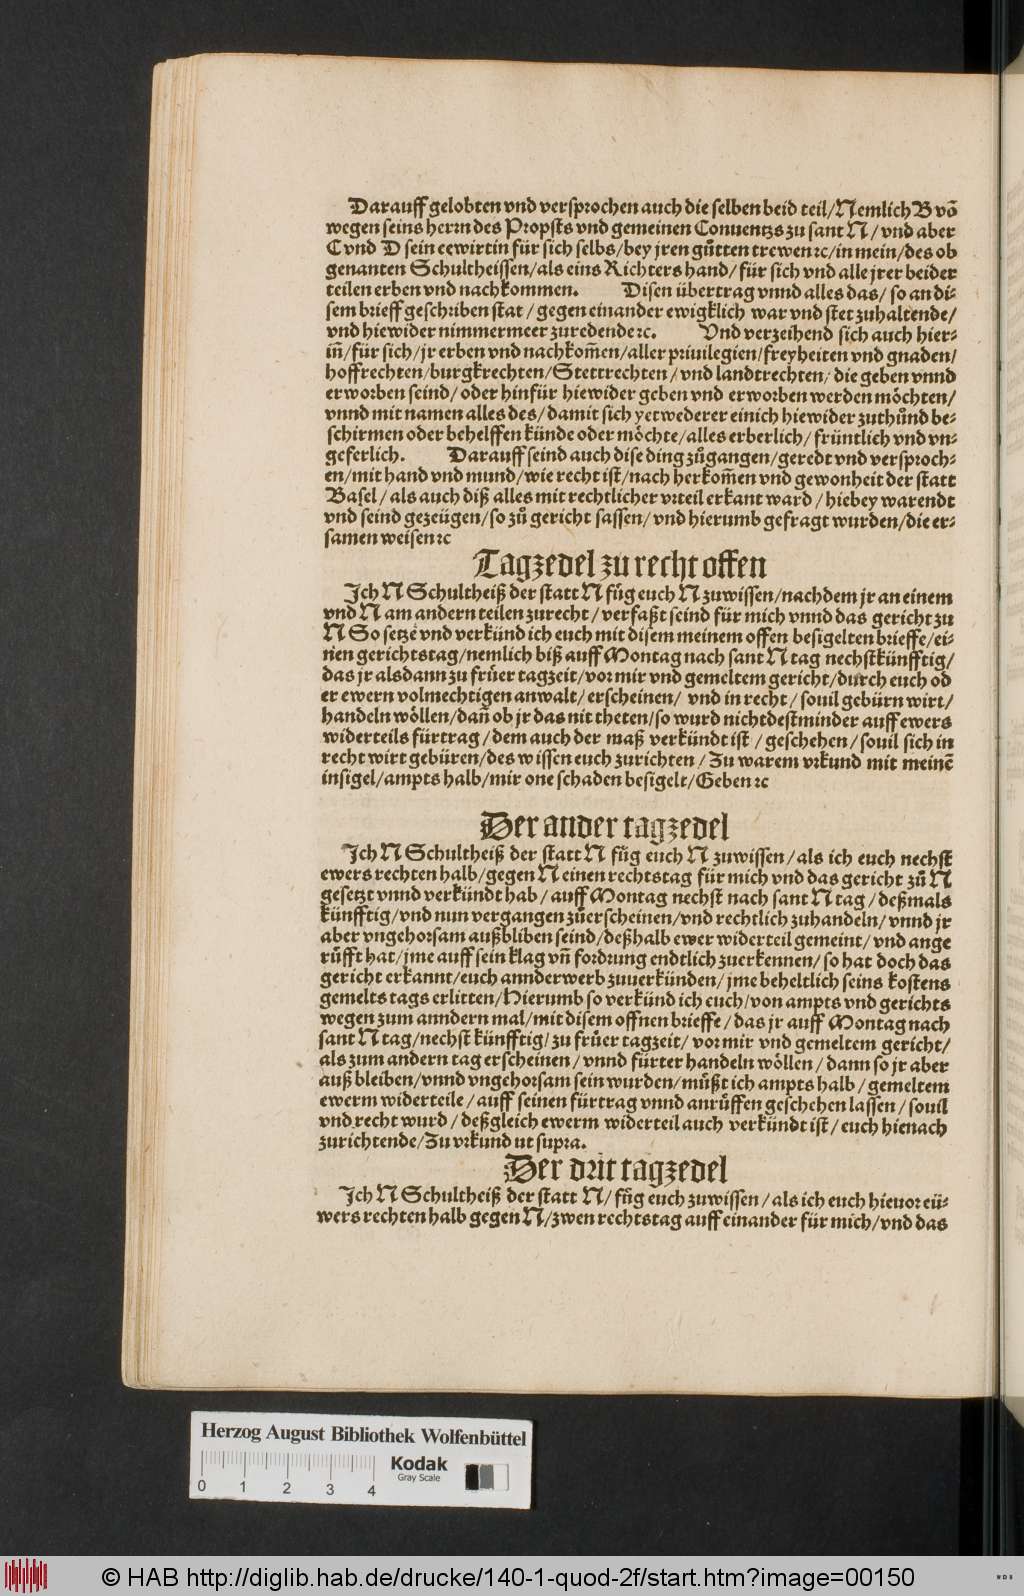 Darauff gelobten vnd versprochen auch die selben beid teil/Nemlich B võ
wegen seins herrn des Propsts vnd gemeinen Conuentzs zu sant N/ vnd aber
C vnd D sein eewirtin für sich selbs/bey jren gůtten trewen ꝛc/in mein/des ob
genanten Schultheissen/als eins Richters hand/ für sich vnd alle jrer beider
teilen erben vnd nachkommen. Disen übertrag vnnd alles das/ so an di-
sem brieff geschriben stat / gegen einander ewigklich war vnd stet zuhaltende/
vnd hiewider nimmermeer zuredende ꝛc. Vnd verzeihend sich auch hier-
iñ/für sich/jr erben vnd nachkom̃en/aller priuilegien/freyheiten vnd gnaden/
hoffrechten/burgkrechten/Stettrechten / vnd landtrechten/ die geben vnnd
erworben seind/ oder hinfür hiewider geben vnd erworben werden möchten/
vnnd mit namen alles des/ damit sich yetwederer einich hiewider zuthůnd be-
schirmen oder behelffen künde oder möchte/alles erberlich/ früntlich vnd vn-
geferlich. Darauff seind auch dise ding zůgangen/geredt vnd versproch-
en/mit hand vnd mund/wie recht ist/nach herkom̃en vnd gewonheit der statt
Basel/ als auch diß alles mit rechtlicher vrteil erkant ward / hiebey warendt
vnd seind gezeügen/so zů gericht sassen/ vnd hierumb gefragt wurden/die er-
samen weisen ꝛc
Tagzedel zu recht offen
Ich N Schultheiß der statt N füg euch N zuwissen/nachdem jr an einem
vnd N am andern teilen zurecht/ verfaßt seind für mich vnnd das gericht zu
N So setze vnd verkünd ich euch mit disem meinem offen besigelten brieffe/ei-
nen gerichtstag/nemlich biß auff Montag nach sant N tag nechstkünfftig/
das jr alsdann zu früer tagzeit/vor mir vnd gemeltem gericht/durch euch od
er ewern volmechtigen anwalt/ erscheinen/ vnd in recht / souil gebürn wirt/
handeln wöllen/dañ ob jr das nit theten/so wurd nichtdestminder auff ewers
widerteils fürtrag / dem auch der maß verkündt ist / geschehen / souil sich in
recht wirt gebüren/des wissen euch zurichten / Zu warem vrkund mit meinẽ
insigel/ampts halb/mir one schaden besigelt/Geben ꝛc
Der ander tagzedel
Ich N Schultheiß der statt N füg euch N zuwissen/ als ich euch nechst
ewers rechten halb/gegen N einen rechtstag für mich vnd das gericht zů N
gesetzt vnnd verkündt hab / auff Montag nechst nach sant N tag / deßmals
künfftig/vnd nun vergangen zůerscheinen/vnd rechtlich zuhandeln/ vnnd jr
aber vngehorsam außbliben seind/deßhalb ewer widerteil gemeint/ vnd ange
rüfft hat/jme auff sein klag vñ fordrung endtlich zuerkennen/ so hat doch das
gericht erkannt/euch annderwerb zuuerkünden/ jme beheltlich seins kostens
gemelts tags erlitten/Hierumb so verkünd ich euch/von ampts vnd gerichts
wegen zum anndern mal/mit disem offnen brieffe / das jr auff Montag nach
sant N tag/nechst künfftig/ zu früer tagzeit/ vor mir vnd gemeltem gericht/
als zum andern tag erscheinen / vnnd fürter handeln wöllen / dann so jr aber
auß bleiben/vnnd vngehorsam sein wurden/müßt ich ampts halb / gemeltem
ewerm widerteile / auff seinen fürtrag vnnd anrüffen geschehen lassen / souil
vnd recht wurd / deßgleich ewerm widerteil auch verkündt ist/ euch hienach
zurichtende/Zu vrkund ut supra.
Der drit tagzedel
Ich N Schultheiß der statt N/ füg euch zuwissen / als ich euch hieuor eü-
wers rechten halb gegen N/zwen rechtstag auff einander für mich/vnd das
Herzog August Bibliothek Wolfenbüttel
Kodak
Gray Scale
0 1 2 3 4
© HAB http://diglib.hab.de/drucke/140-1-quod-2f/start.htm?image=00150